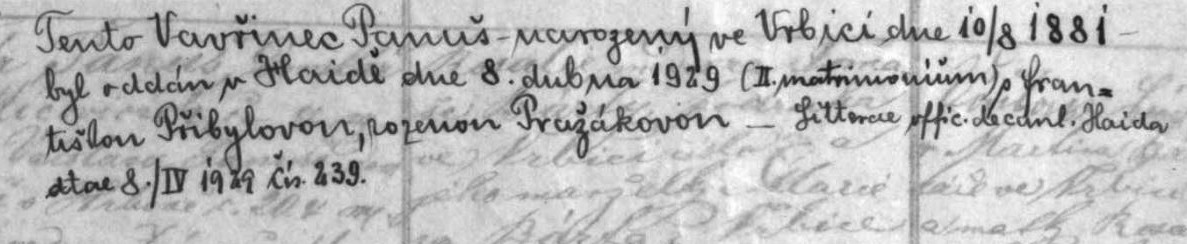 Tento Vavřinec Panuš - narozený ve Vrbici dne 10/8 1881 -
byl oddán v Haidě dne 8. dubna 1929 (II. matrimonium) s Fran=
tiškou Přibylovou, rozenou Pražákovou — Litterae offic. decanl. Haida
dtae 8./IV 1929 čís. 239.